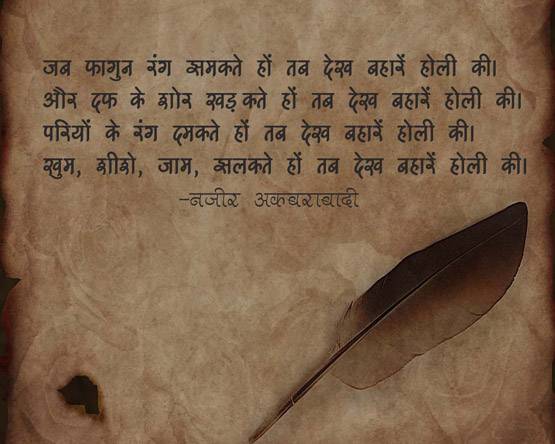 जब फागुन रंग झमकते हों तब देख बहारें होली की।
और दफ के शोर खड़कते हों तब देख बहारें होली की।
परियों के रंग दमकते हों तब देख बहारें होली की।
खुम, शीशे, जाम, झलकते हों तब देख बहारें होली की।
-नजीर अकबराबादी